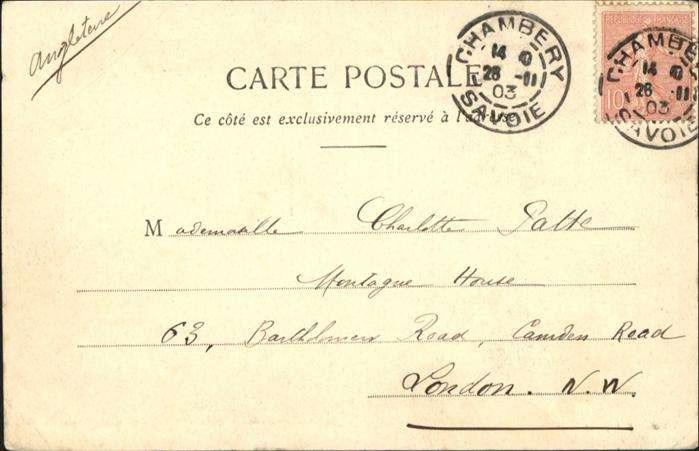 Angleterre
CHAMBERY
14
26 -11
03
SAVOIE
REPUBLIQUE FRANÇAISE
10
CHAMBERY
14
26 -11
03
SAVOIE
CARTE POSTALE
Ce côté est exclusivement réservé à l'adresse
Mademoiselle Charlotte Patte
Montague House
63, Bartholomew Road, Camden Road
London. N.W.